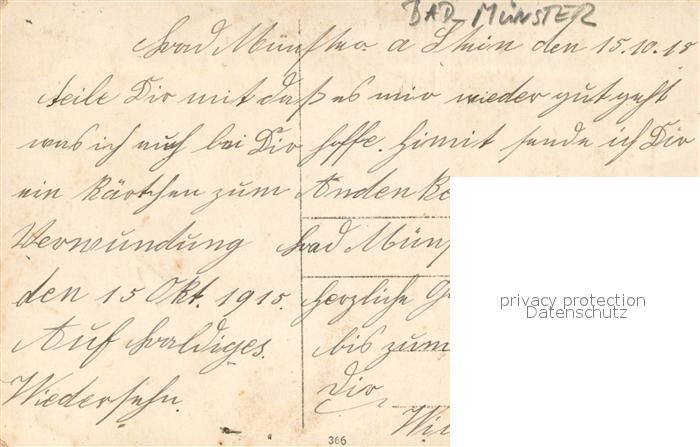 BAD-MÜNSTER
Bad Münster a Stein den 15.10.15
teile Dir mit daß es mir wieder gut geht
was ich auch bei Dir hoffe. Himit sende ich Dir
ein Kärtchen zum Andenke
Verwundung Bad Müns
den 15 Okt. 1915. Herzliche G
Auf baldiges. bis zum
Wiedersehn. Dir
Wie
privacy protection
Datenschutz
366